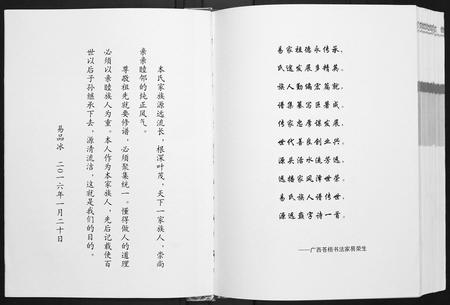 本氏家族源远流长，根深叶茂，天下一家族人，崇尚
亲亲睦邻的纯正风气。
尊敬祖先就要修谱，必须聚集统一。懂得做人的道理
必须以亲睦族人为重。本人作为本家族人，先后记载使百
世以后子孙继承下去，源清流洁，这就是我们的目的。
易品冰 二〇一六年一月二十日
易家祖德永传承，
氏发展多精英。
族人勤编宏篇就，
谱集纂写巨著成。
传家忠厚谋发展，
世代善良创业兴。
源头活水流芳远，
远播家风泽世荣。
易氏族人谱传世，
源远藏字诗一首。
——广西苍梧书法家易荣生